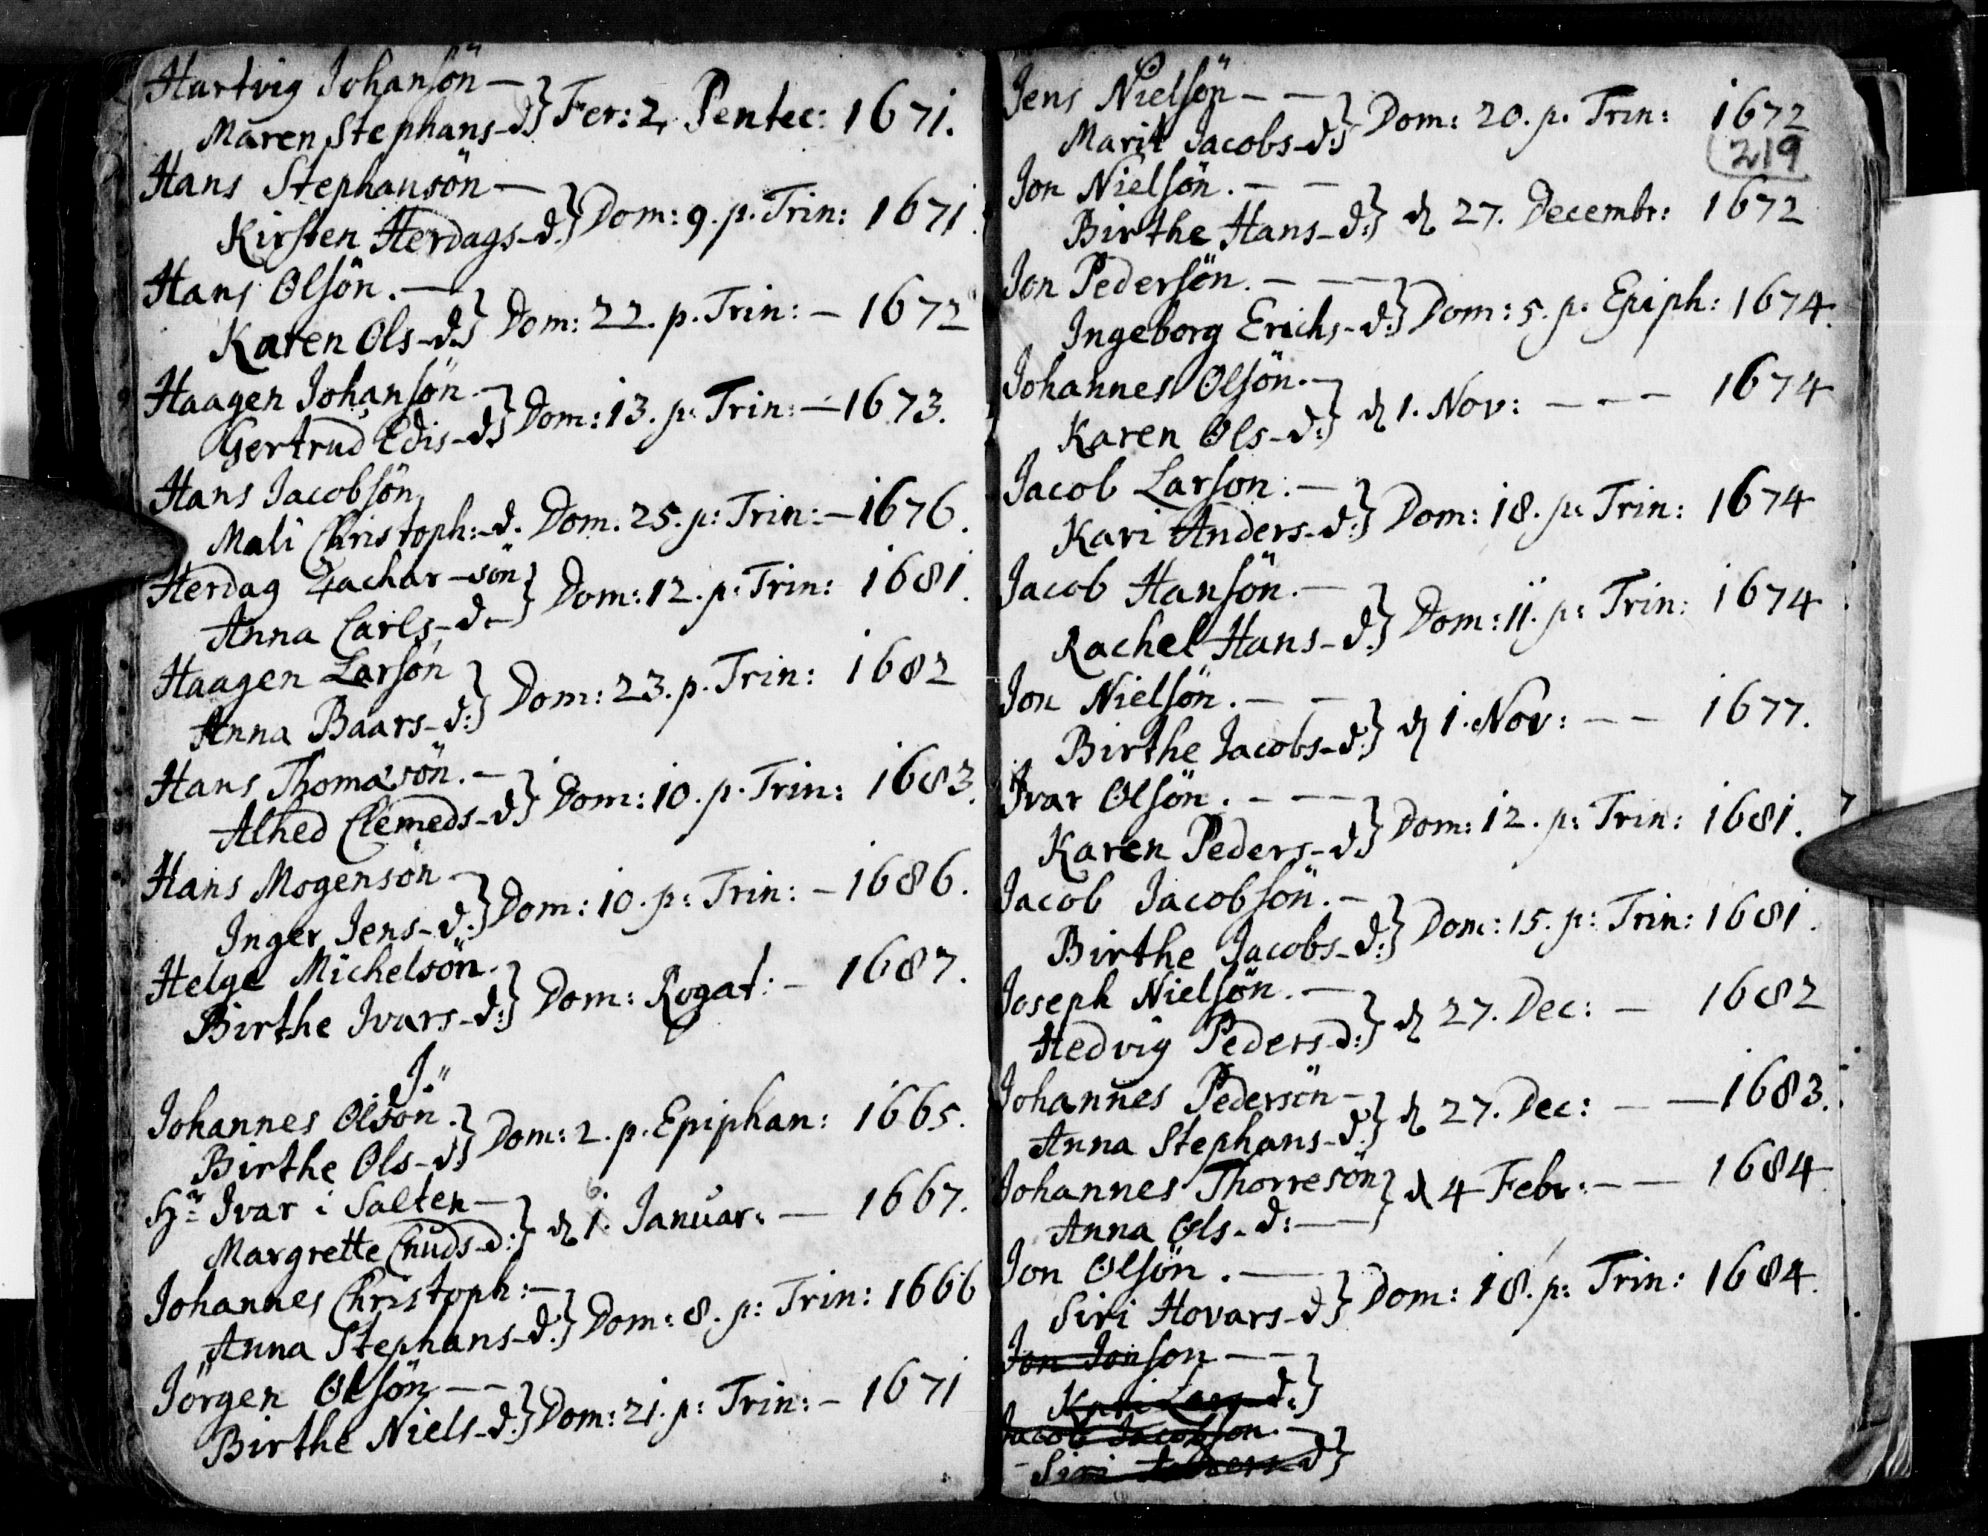 Hartvig Johansön —
Maren Stephans-d} Fer: 2. Pentec: 1671.
Hans Stephansön —
Kirsten Herdags-d.} Dom: 9. p. Trin: 1671.
Hans Olsön. —
Karen Ols-d.} Dom: 22. p. Trin: — 1672
Haagen Johansön —
Gertrud Edis-d} Dom: 13. p: Trin: — 1673.
Hans Jacobsön
Mali Christoph:-d. Dom. 25. p: Trin: — 1676.
Herdag Zachar-sön
Anna Carls-d —} Dom: 12. p: Trin: 1681.
Haagen Larsön
Anna Baars-d:} Dom: 23. p. Trin: 1682
Hans Thomasön. —
Alhed Clemeds-d} Dom: 10. p. Trin: 1683.
Hans Mogensön —
Inger Jens-d.} Dom: 10. p: Trin: — 1686.
Helge Michelsön.
Birthe Ivars-d:} Dom: Rogat: — 1687.
J.
Johannes Olsön.
Birthe Ols-d} Dom: 2. p. Epiphan: 1665.
Hr Ivar i Salten —
Margrette Cnuds-d:} d. Januar: — 1667.
Johannes Christoph: —
Anna Stephans-d.} Dom: 8. p: Trin: 1666
Jörgen Olsön — —
Birthe Niels-d.} Dom: 21. p: Trin: — 1671
Jens Nielsön — —
Marit Jacobs-d:} Dom: 20. p. Trin: 1672
219
Jon Nielsön. — —
Birthe Hans-d:} d. 27. Decembr: 1672
Jon Pedersön. — — —
Ingeborg Erichs-d:} Dom: 5. p. Epiph: 1674.
Johannes Olsön. —
Karen Ols-d:} d. 1. Nov: — — — 1674
Jacob Larson: —
Kari Anders-d:} Dom: 18. p: Trin: 1674
Jacob Hansön. —
Rachel Hans-d:} Dom: 11. p: Trin: 1674
Jon Nielsön. — —
Birthe Jacobs-d:} d. 1. Nov: — — 1677.
Ivar Olsön. — — —
Karen Peders-d} Dom: 12. p: Trin: 1681.
Jacob Jacobsön. —
Birthe Jacobs-d:} Dom: 15. p: Trin: 1681.
Joseph Nielsön. —
Hedvig Peders-d:} d. 27. Dec: — 1682
Johannes Pedersön —
Anna Stephans-d:} d. 27. Dec: — — 1683.
Johannes Thorresön
Anna Ols-d: — —} d. 4 Febr: — — 1684
Jon Olsön. — —
Siri Hovars-d} Dom: 18. p: Trin: 1684.
Jon Jonson — —
Kari Lars-d:}
Jacob Jacobson —
Siri